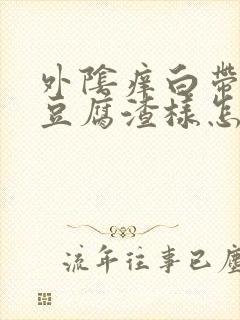 外陰痒白帶
豆腐渣樣怎
流年往事已塵